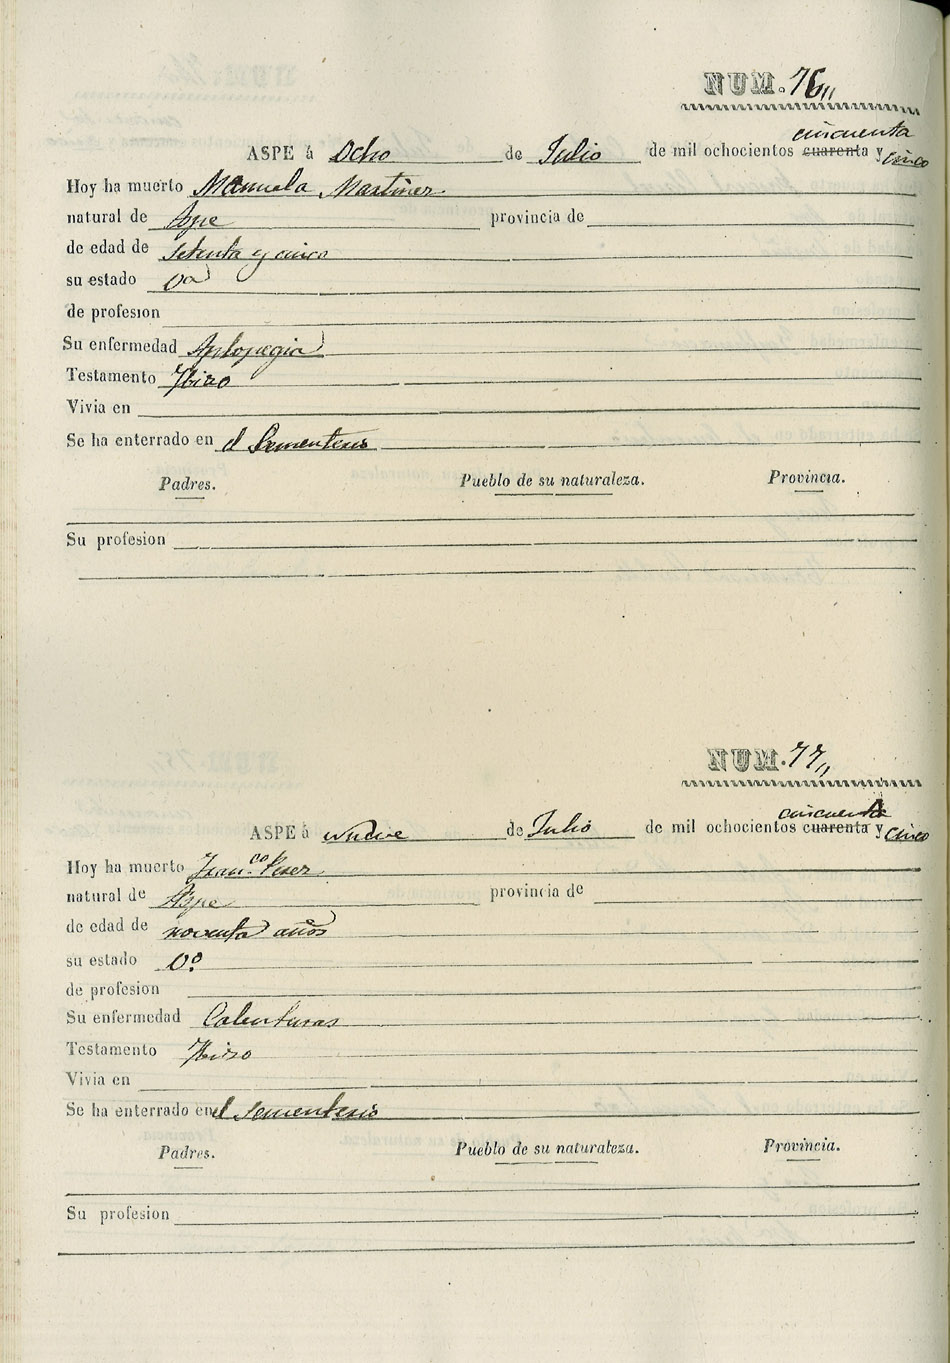 NUM. 76,,
cincuenta
ASPE á Ocho de Julio de mil ochocientos cuarenta y cinco
Hoy ha muerto Manuela Martinez
natural de Aspe provincia de
de edad de setenta y cinco
su estado Va
de profesion
Su enfermedad Aplopegia
Testamento Hizo
Vivia en
Se ha enterrado en el Sementerio
Padres. Pueblo de su naturaleza. Provincia.
Su profesion
NUM. 77,,
cincuenta
ASPE á nueve de Julio de mil ochocientos cuarenta y cinco
Hoy ha muerto Franco. Perez
natural de Aspe provincia de
de edad de noventa años
su estado Vo.
de profesion
Su enfermedad Calenturas
Testamento Hizo
Vivia en
Se ha enterrado en el Sementerio
Padres. Pueblo de su naturaleza. Provincia.
Su profesion